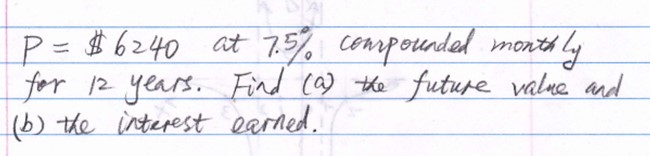 P = $6240 at 7.5% compounded monthly
for 12 years. Find (a) the future value and
(b) the interest earned.